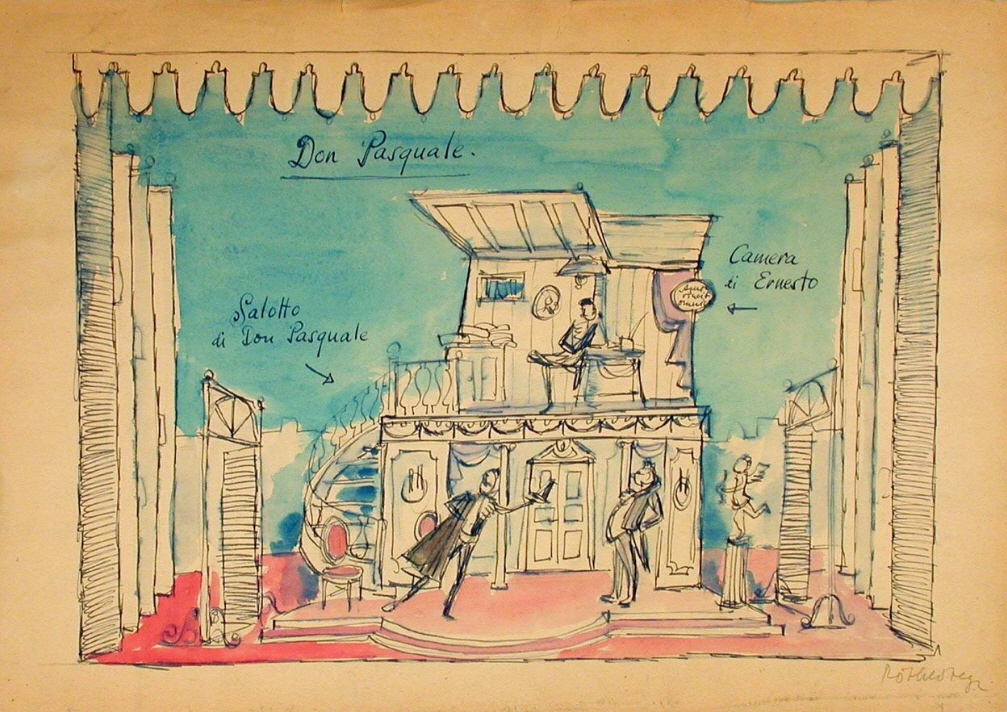 Don Pasquale.
Camera
di Ernesto
Salotto
di Don Pasquale